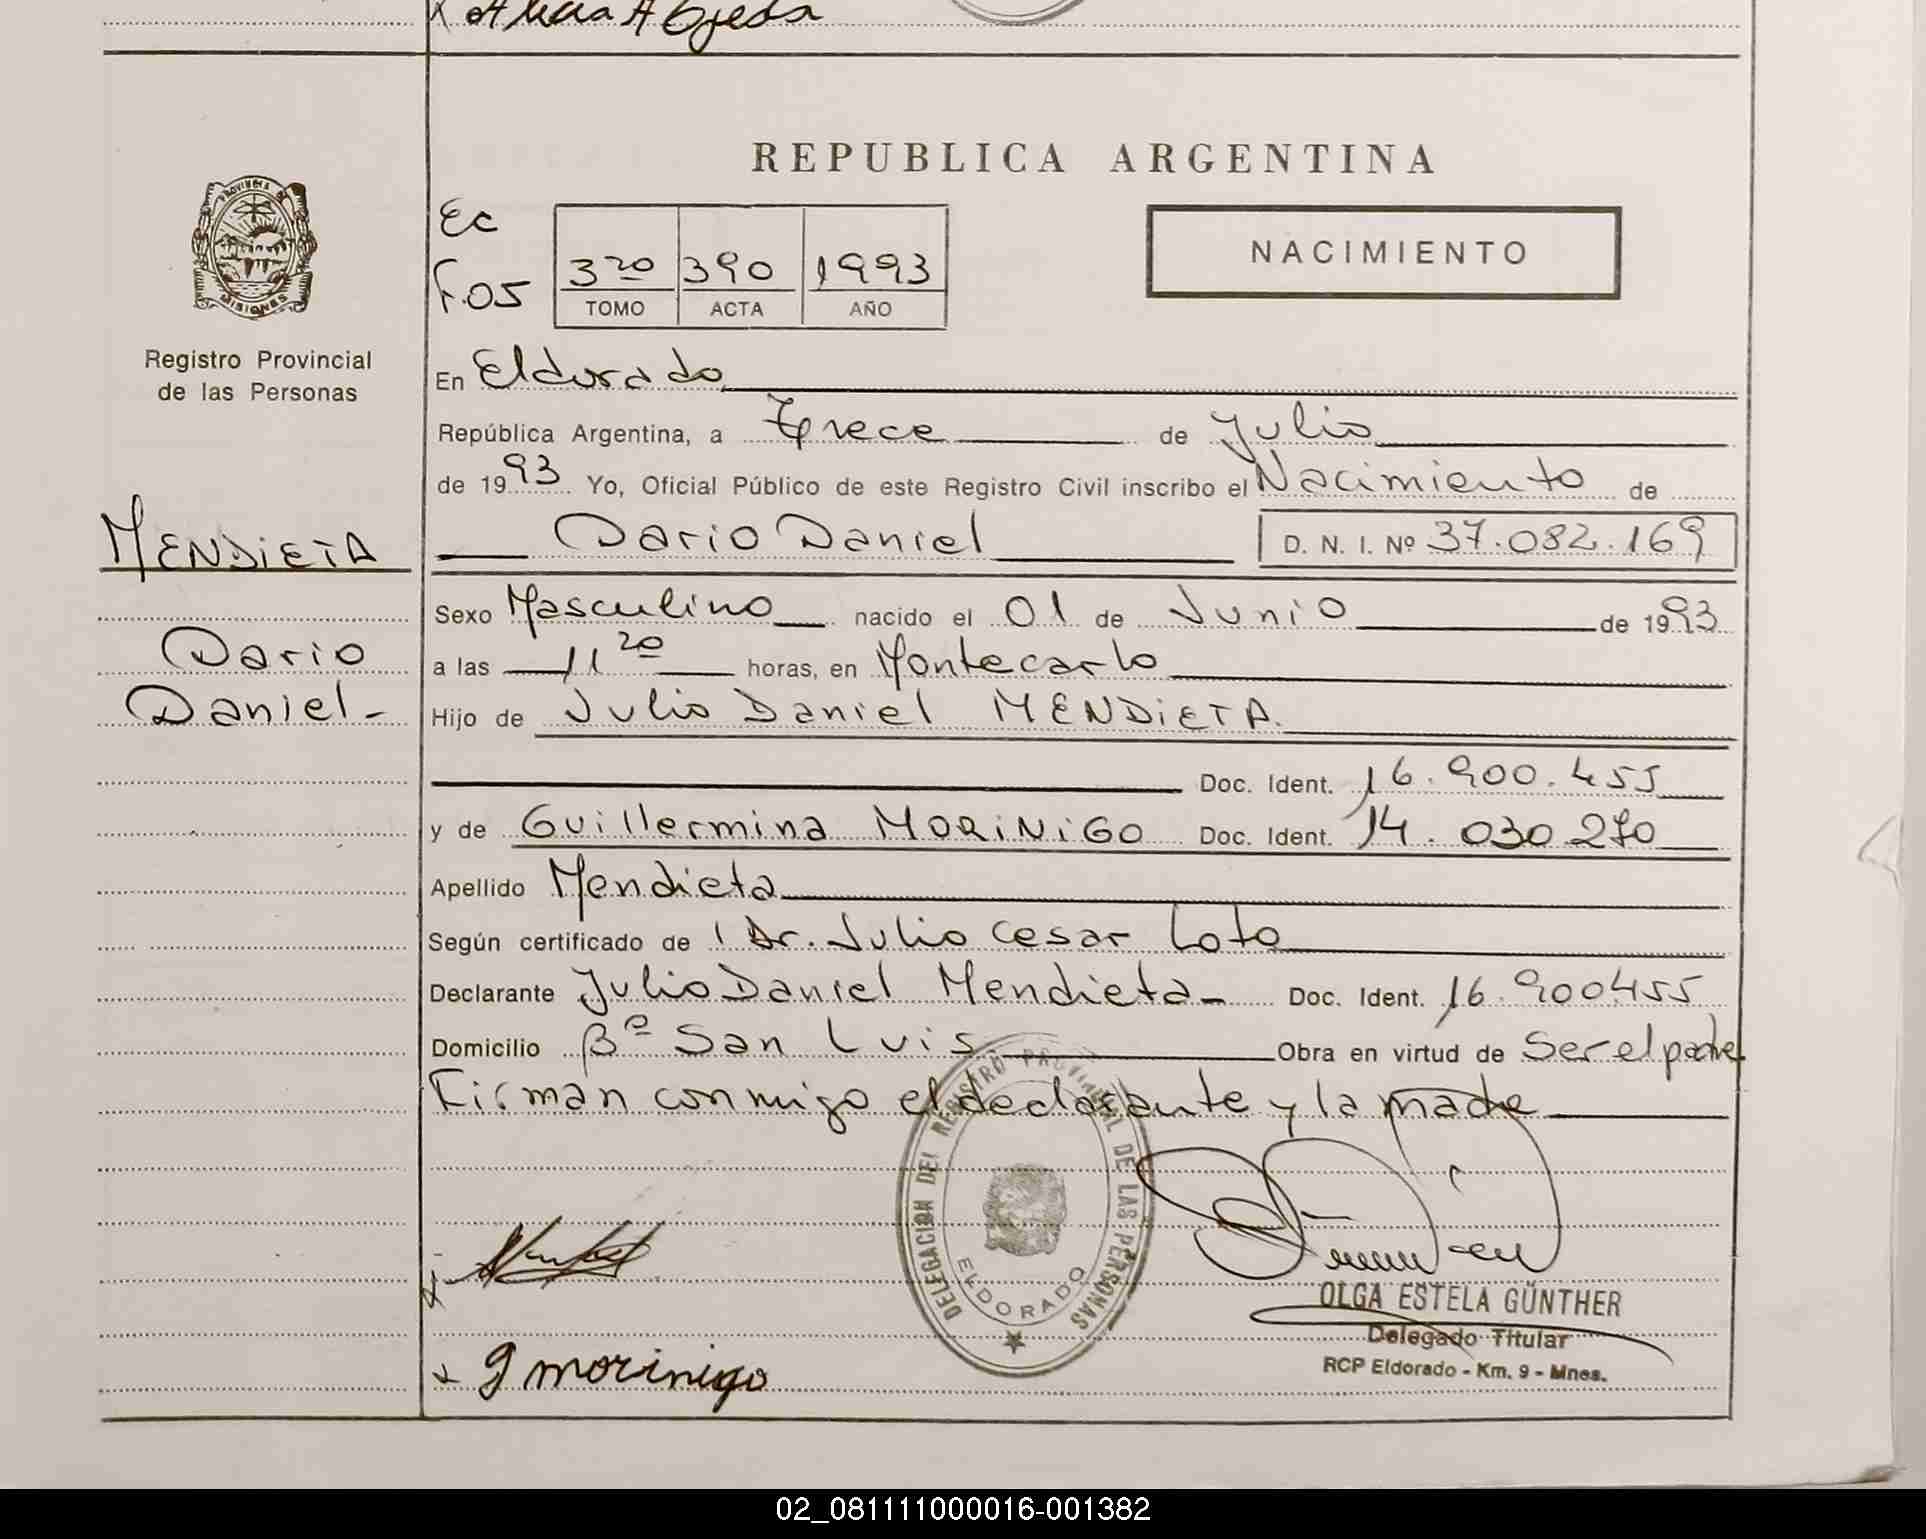 x Alicia A Ojeda
REPUBLICA ARGENTINA
PROVINCIA DE
MISIONES
Registro Provincial
de las Personas
Ec
F.05
3 20 390 1993
TOMO ACTA AÑO
NACIMIENTO
En Eldorado
República Argentina, a Trece de Julio
de 1993 Yo, Oficial Público de este Registro Civil inscribo el Nacimiento de
MENDIETA
Dario Daniel D. N. I. Nº 37.082.169
Sexo Masculino nacido el 01 de Junio de 1993
Dario
a las 11 20 horas, en Montecarlo
Daniel-
Hijo de Julio Daniel MENDIETA.
Doc. Ident. 16.900.455
y de Guillermina MORINIGO Doc. Ident. 14.030.270
Apellido Mendieta
Según certificado de Dr. Julio Cesar Loto
Declarante Julio Daniel Mendieta- Doc. Ident. 16.900455
Domicilio Bº San Luis Obra en virtud de Ser el padre
Firman conmigo el declarante y la madre
DELEGACION DEL REGISTRO PROVINCIAL DE LAS PERSONAS
ELDORADO
OLGA ESTELA GÜNTHER
Delegado Titular
RCP Eldorado - Km. 9 - Mnes.
x G morinigo
02_081111000016-001382